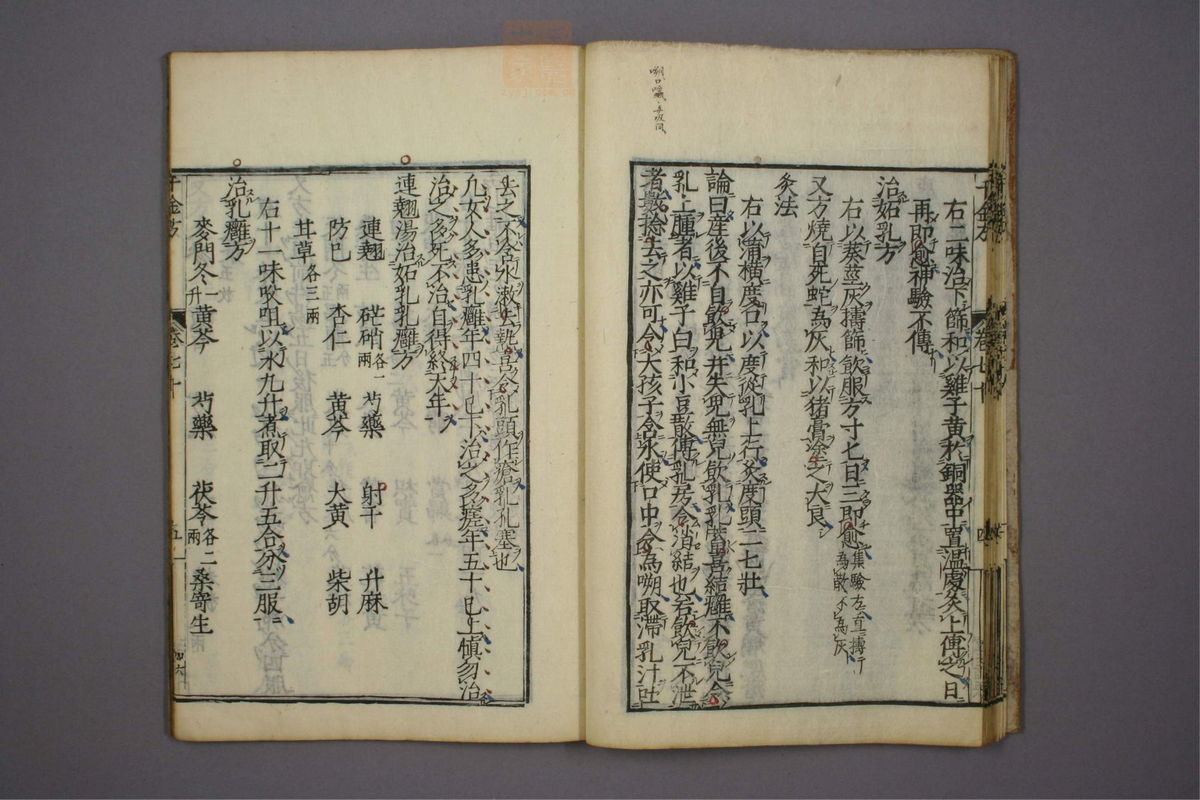 右二味治下篩和以雞子黄於銅器中置溫處炙上傅之日
再即愈神驗不傳
治妬乳方
右以葵莖灰擣篩飲服方寸七日三即愈集驗方直擣為散不為灰
又方燒自死蛇為灰和以猪膏塗之大良
灸法
右以蒲橫度口以度從乳上行灸度頭二七壯
論曰産後不自飲兒并失兒無兒飲乳乳蓄喜結癰不飲兒令
乳上腫者以雞子白和小豆散傅乳房令消結也若飲兒不泄
者數捻去之亦可令大孩子含水使口中令為嗍取滯乳汁吐
去之不含水漱去熱喜令乳頭作瘡乳孔塞也
凡女人多患乳癰年四十已下治之多瘥年五十已上慎勿治
治之多死不治自得終天年
連翹湯治妬乳乳癰方
連翹 芒硝各一兩 芍藥 射干 升麻
防已 杏仁 黄芩 大黄 柴胡
甘草各三兩
右十一味㕮咀以水九升煮取二升五合分三服
治乳癰方
麥門冬一升 黄芩 芍藥 茯苓各二兩 桑寄生
千金方 卷七十 五一